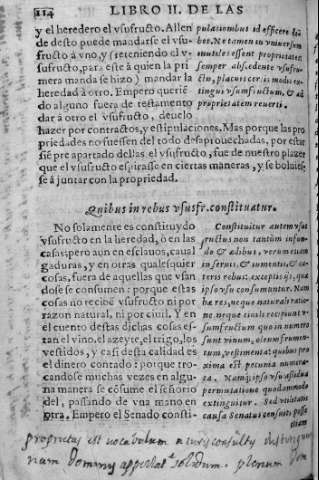 114 LIBRO II. DE LAS
y el heredero el vsufructo. Allen
de desto puede mandarse el vsu-
fructo à vno, y (reteniendo el v-
sufructo, para este à quien la pri
mera manda se hizo) mandar la
heredad à otro. Empero querié
do alguno fuera de testamento
dar à otro el vsufructo, deuelo
hazer por contractos, y estipulaciones. Mas porque las pro
priedades no fuessen del todo desaprouechadas, por estar
siépre apartado dellas el vsufructo, fue de nuestro plazer
que el vsufructo espirasse en ciertas maneras, y se boluiesse
se à juntar con la propriedad.
pulationibus id efficere de
bet. Ne tamen in vniuersum
inutiles essent proprietates
semper abscedente vsufru-
cto, placuit certis modis ex-
tingui vsumfructum, & ad
proprietatem reuerti.
Quibus in rebus vsusfr. constituatur.
No solamente es constituydo
vsufructo en la heredad, ò en las
casas: pero aun en esclauos, caual
gaduras, y en otras qualesquier
cosas, fuera de aquellas que vsan
dose se consumen: porque estas
cosas no recibē vsufructo ni por
razon natural, ni por ciuil. Y en
el cuento destas dichas cosas es-
tan el vino, el azeyte, el trigo, los
vestidos, y casi desta calidad es
el dinero contado: porque tro-
candose muchas vezes en algu-
na manera se cōsume el señorio
del, passando de vna mano en
otra. Empero el Senado consti-
Constituitur autem vsus
fructus non tantùm in fun-
do & ædibus, verum etiam
in seruis, & iumentis, & cæ-
teris rebus: exceptis ijs, quæ
ipso vsu consumuntur. Nam
hæ res, neque naturali ratio-
ne, neque ciuili recipiunt v-
sumfructum quo in numero
sunt vinum, oleum frumen-
tum, vestimenta: quibus pro
xima est pecunia numera-
ta. Namq; ipso vsu assidua
permutatione quodammodo
extinguitur. Sed vtilitatis
causa Senatus censuit posse
proprietas est vocabulum a iurisconsultis
nam Dominus appellat solidum. plenum Dom